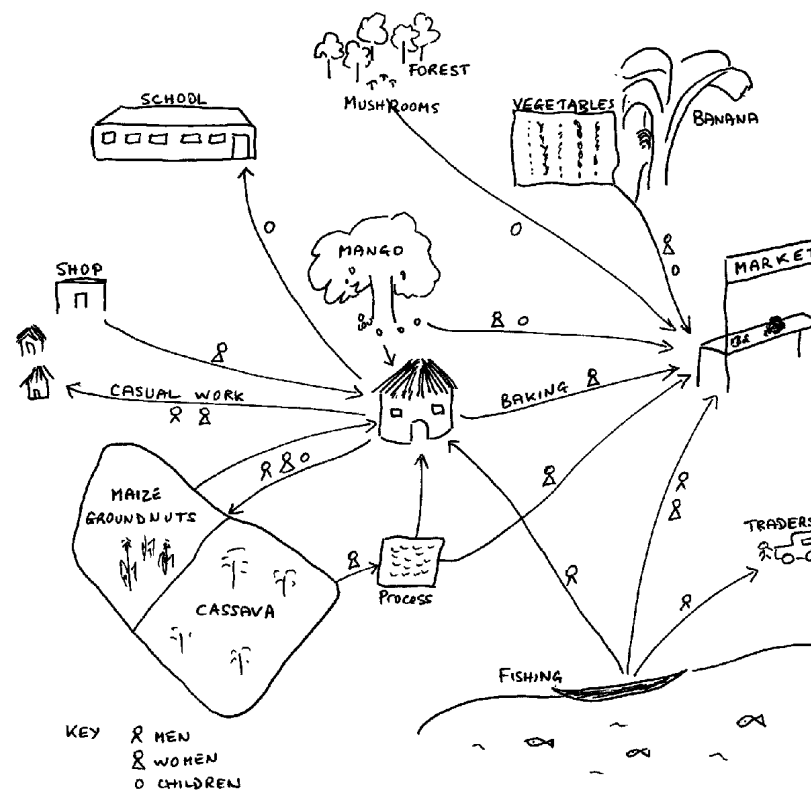 FOREST
MUSHROOMS
SCHOOL
VEGETABLES
BANANA
MANGO
MARKET
SHOP
CASUAL WORK
BAKING
MAIZE
GROUNDNUTS
TRADERS
CASSAVA
Process
FISHING
KEY
MEN
WOMEN
CHILDREN